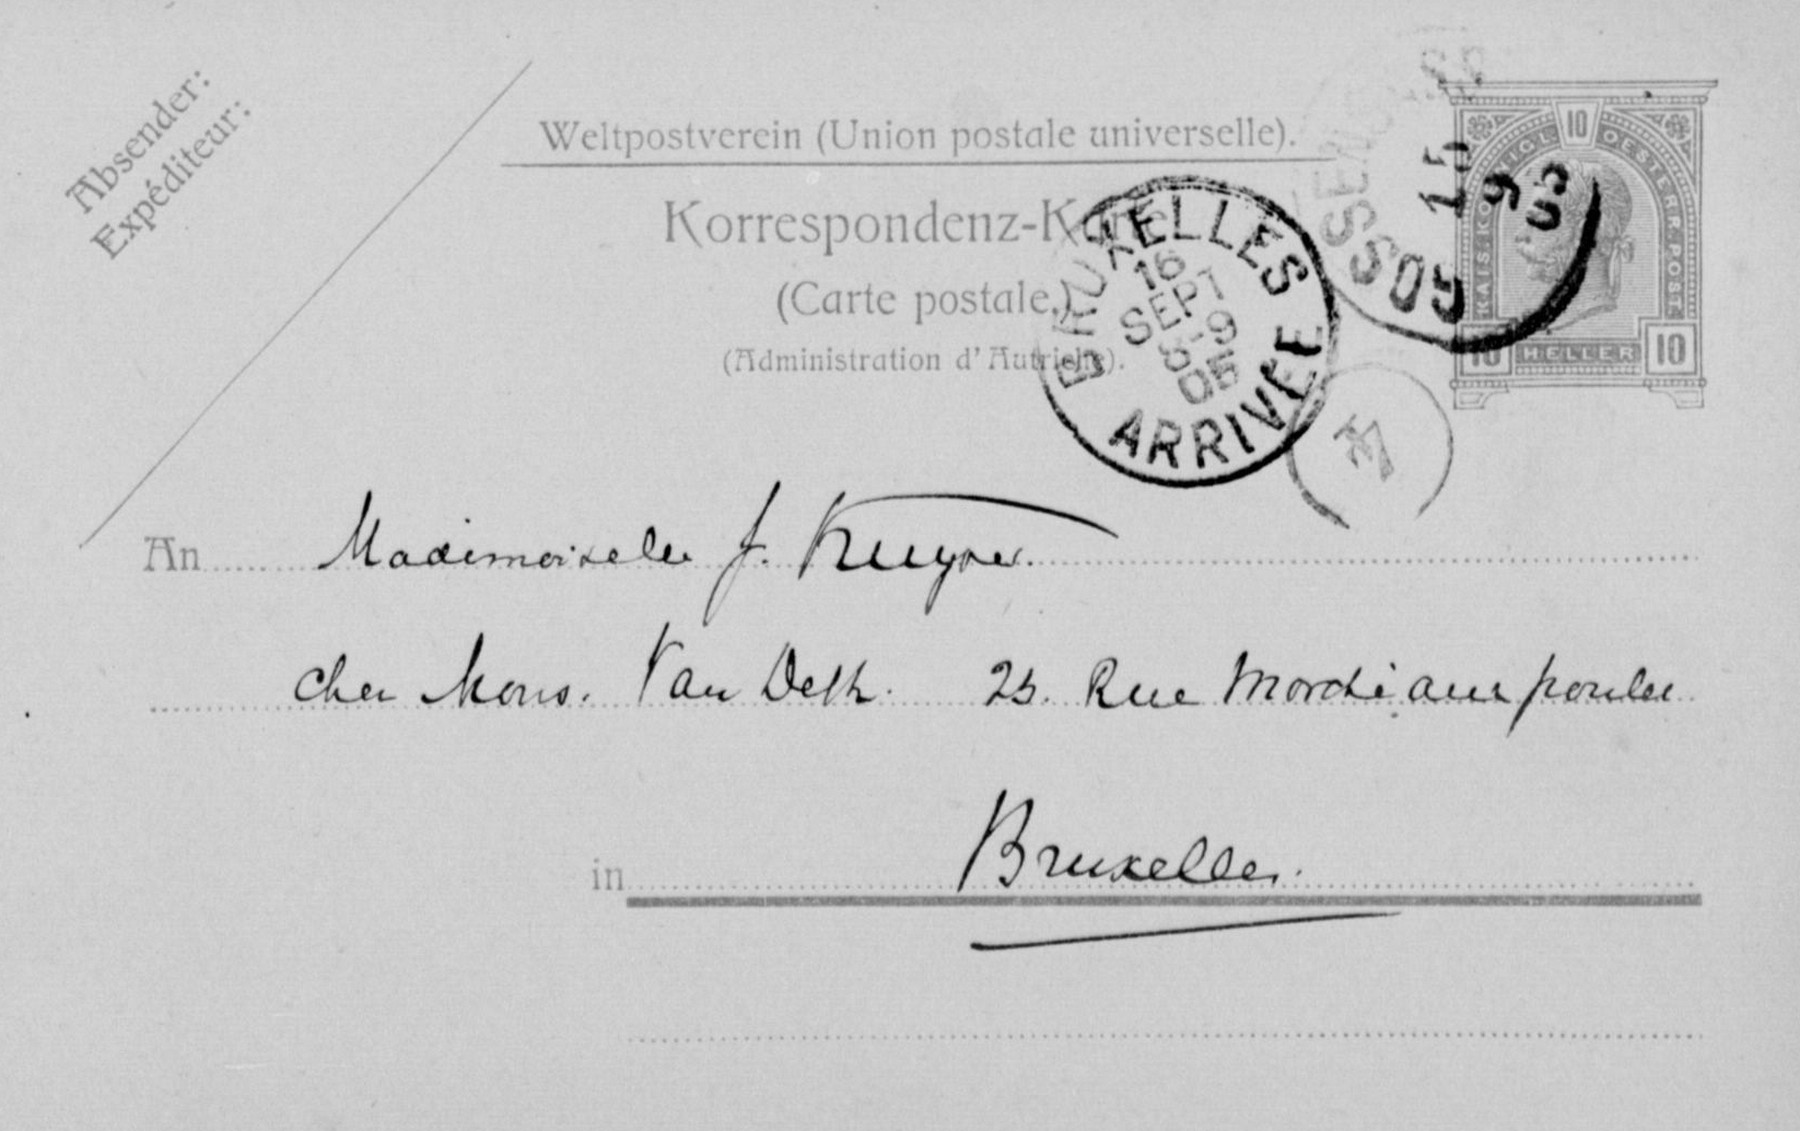 Absender:
Expéditeur:
Weltpostverein (Union postale universelle).
Korrespondenz-Karte
(Carte postale.)
(Administration d'Autriche).
10
KAIS. KÖNIGL. OESTERR. POST.
10 HELLER 10
GOSSENSASS
15
9
05
BRUXELLES
16
SEPT
8-9
05
ARRIVÉE
An Mademoiselle J. Kuyper.
chez Mons. Van Deth. 25. Rue Marché aux poulets
in Bruxelles.